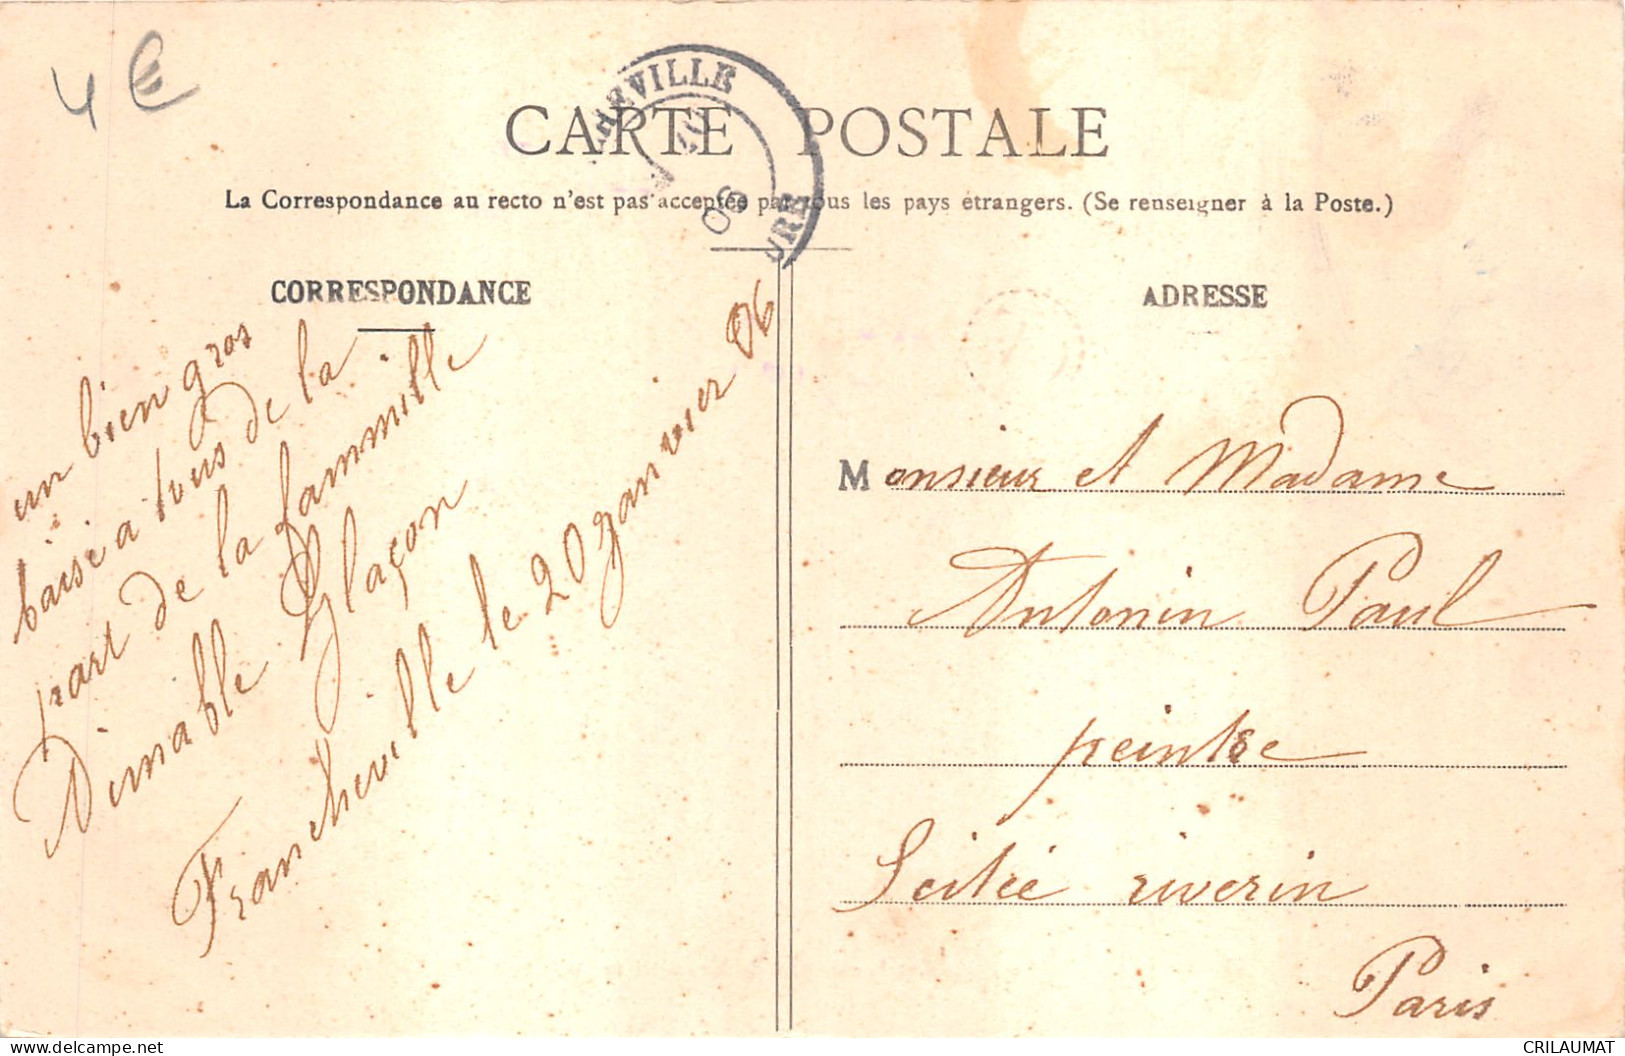 4 €
CARTE POSTALE
La Correspondance au recto n'est pas acceptée par tous les pays étrangers. (Se renseigner à la Poste.)
HEVILLE
06
URE
CORRESPONDANCE
un bien gros
baise a tous de la
part de la fammille
Dimable Glaçon
Francheville le 20 janvier 06
ADRESSE
Monsieur et Madame
Antonin Paul
peintre
5 citée riverin
Paris
CRILAUMAT